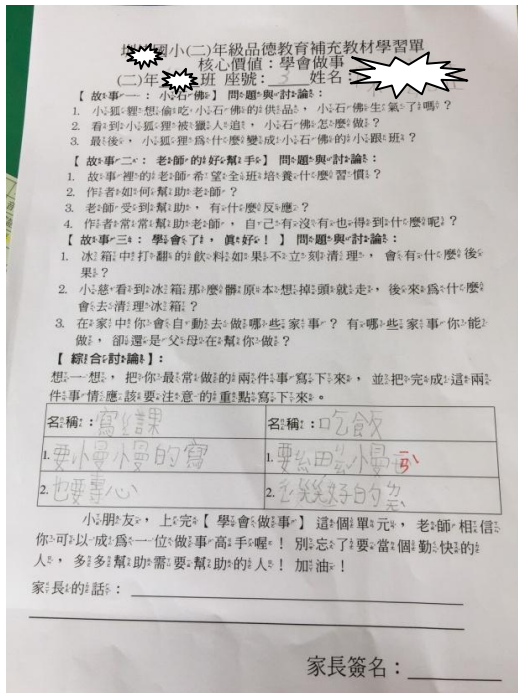 國小(二)年級品德教育補充教材學習單
核心價值：學會做事
(二)年 班 座號：3 姓名：
【故事一：小石佛】問題與討論：
1. 小狐狸想偷吃小石佛的供品，小石佛生氣了嗎？
2. 看到小狐狸被獵人追，小石佛怎麼做？
3. 最後，小狐狸為什麼變成小石佛的小跟班？
【故事二：老師的好幫手】問題與討論：
1. 故事裡的老師希望全班培養什麼習慣？
2. 作者如何幫助老師？
3. 老師受到幫助，有什麼反應？
4. 作者常常幫助老師，自己有沒有也得到什麼呢？
【故事三：學會了，真好！】問題與討論：
1. 冰箱中打翻的飲料如果不立刻清理，會有什麼後
果？
2. 小慈看到冰箱那麼髒原本想掉頭就走，後來為什麼
會去清理冰箱？
3. 在家中你會自動去做哪些家事？有哪些家事你能
做，卻還是父母在幫你做？
【綜合討論】：
想一想，把你最常做的兩件事寫下來，並把完成這兩
件事情應該要注意的重點寫下來。
名稱：寫功課 名稱：吃飯
1. 要慢慢的寫 1. 要細嚼慢
2. 也要專心 2. 好的
小朋友，上完【學會做事】這個單元，老師相信
你可以成為一位做事高手喔！別忘了要當個勤快的
人，多多幫助需要幫助的人！加油！
家長的話：
家長簽名：